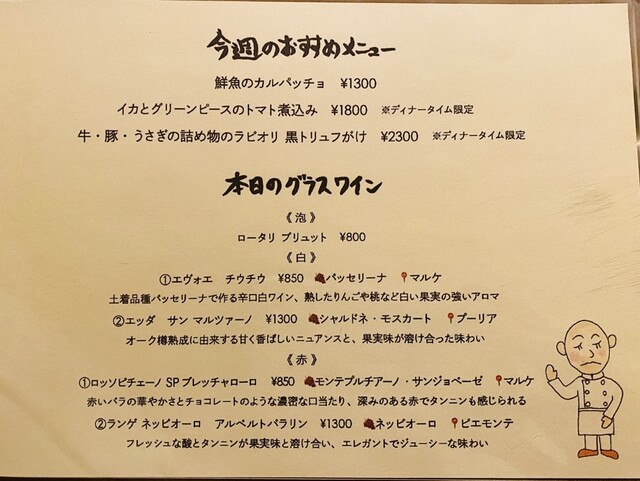 今週のおすすめメニュー
鮮魚のカルパッチョ ¥1300
イカとグリーンピースのトマト煮込み ¥1800 ※ディナータイム限定
牛・豚・うさぎの詰め物のラビオリ 黒トリュフがけ ¥2300 ※ディナータイム限定
本日のグラスワイン
《 泡 》
ロータリ ブリュット ¥800
《 白 》
①エヴォエ チウチウ ¥850 🍇パッセリーナ 📍マルケ
土着品種パッセリーナで作る辛口白ワイン、熟したりんごや桃など白い果実の強いアロマ
②エッダ サン マルツァーノ ¥1300 🍇シャルドネ・モスカート 📍プーリア
オーク樽熟成に由来する甘く香ばしいニュアンスと、果実味が溶け合った味わい
《 赤 》
①ロッソピチェーノ SP ブレッチャローロ ¥850 🍇モンテプルチアーノ・サンジョベーゼ 📍マルケ
赤いバラの華やかさとチョコレートのような濃密な口当たり、深みのある赤でタンニンも感じられる
②ランゲ ネッビオーロ アルベルトバラリン ¥1300 🍇ネッビオーロ 📍ピエモンテ
フレッシュな酸とタンニンが果実味と溶け合い、エレガントでジューシーな味わい